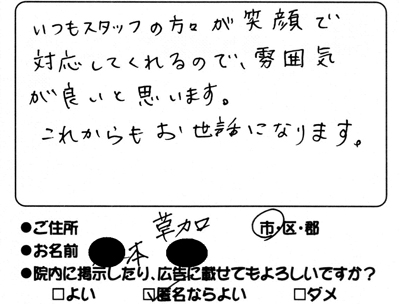 いつもスタッフの方々が笑顔で
対応してくれるので、雰囲気
が良いと思います。
これからもお世話になります。
●ご住所 草加 市・区・郡
●お名前 本
●院内に掲示したり、広告に載せてもよろしいですか？
□よい ☑匿名ならよい □ダメ